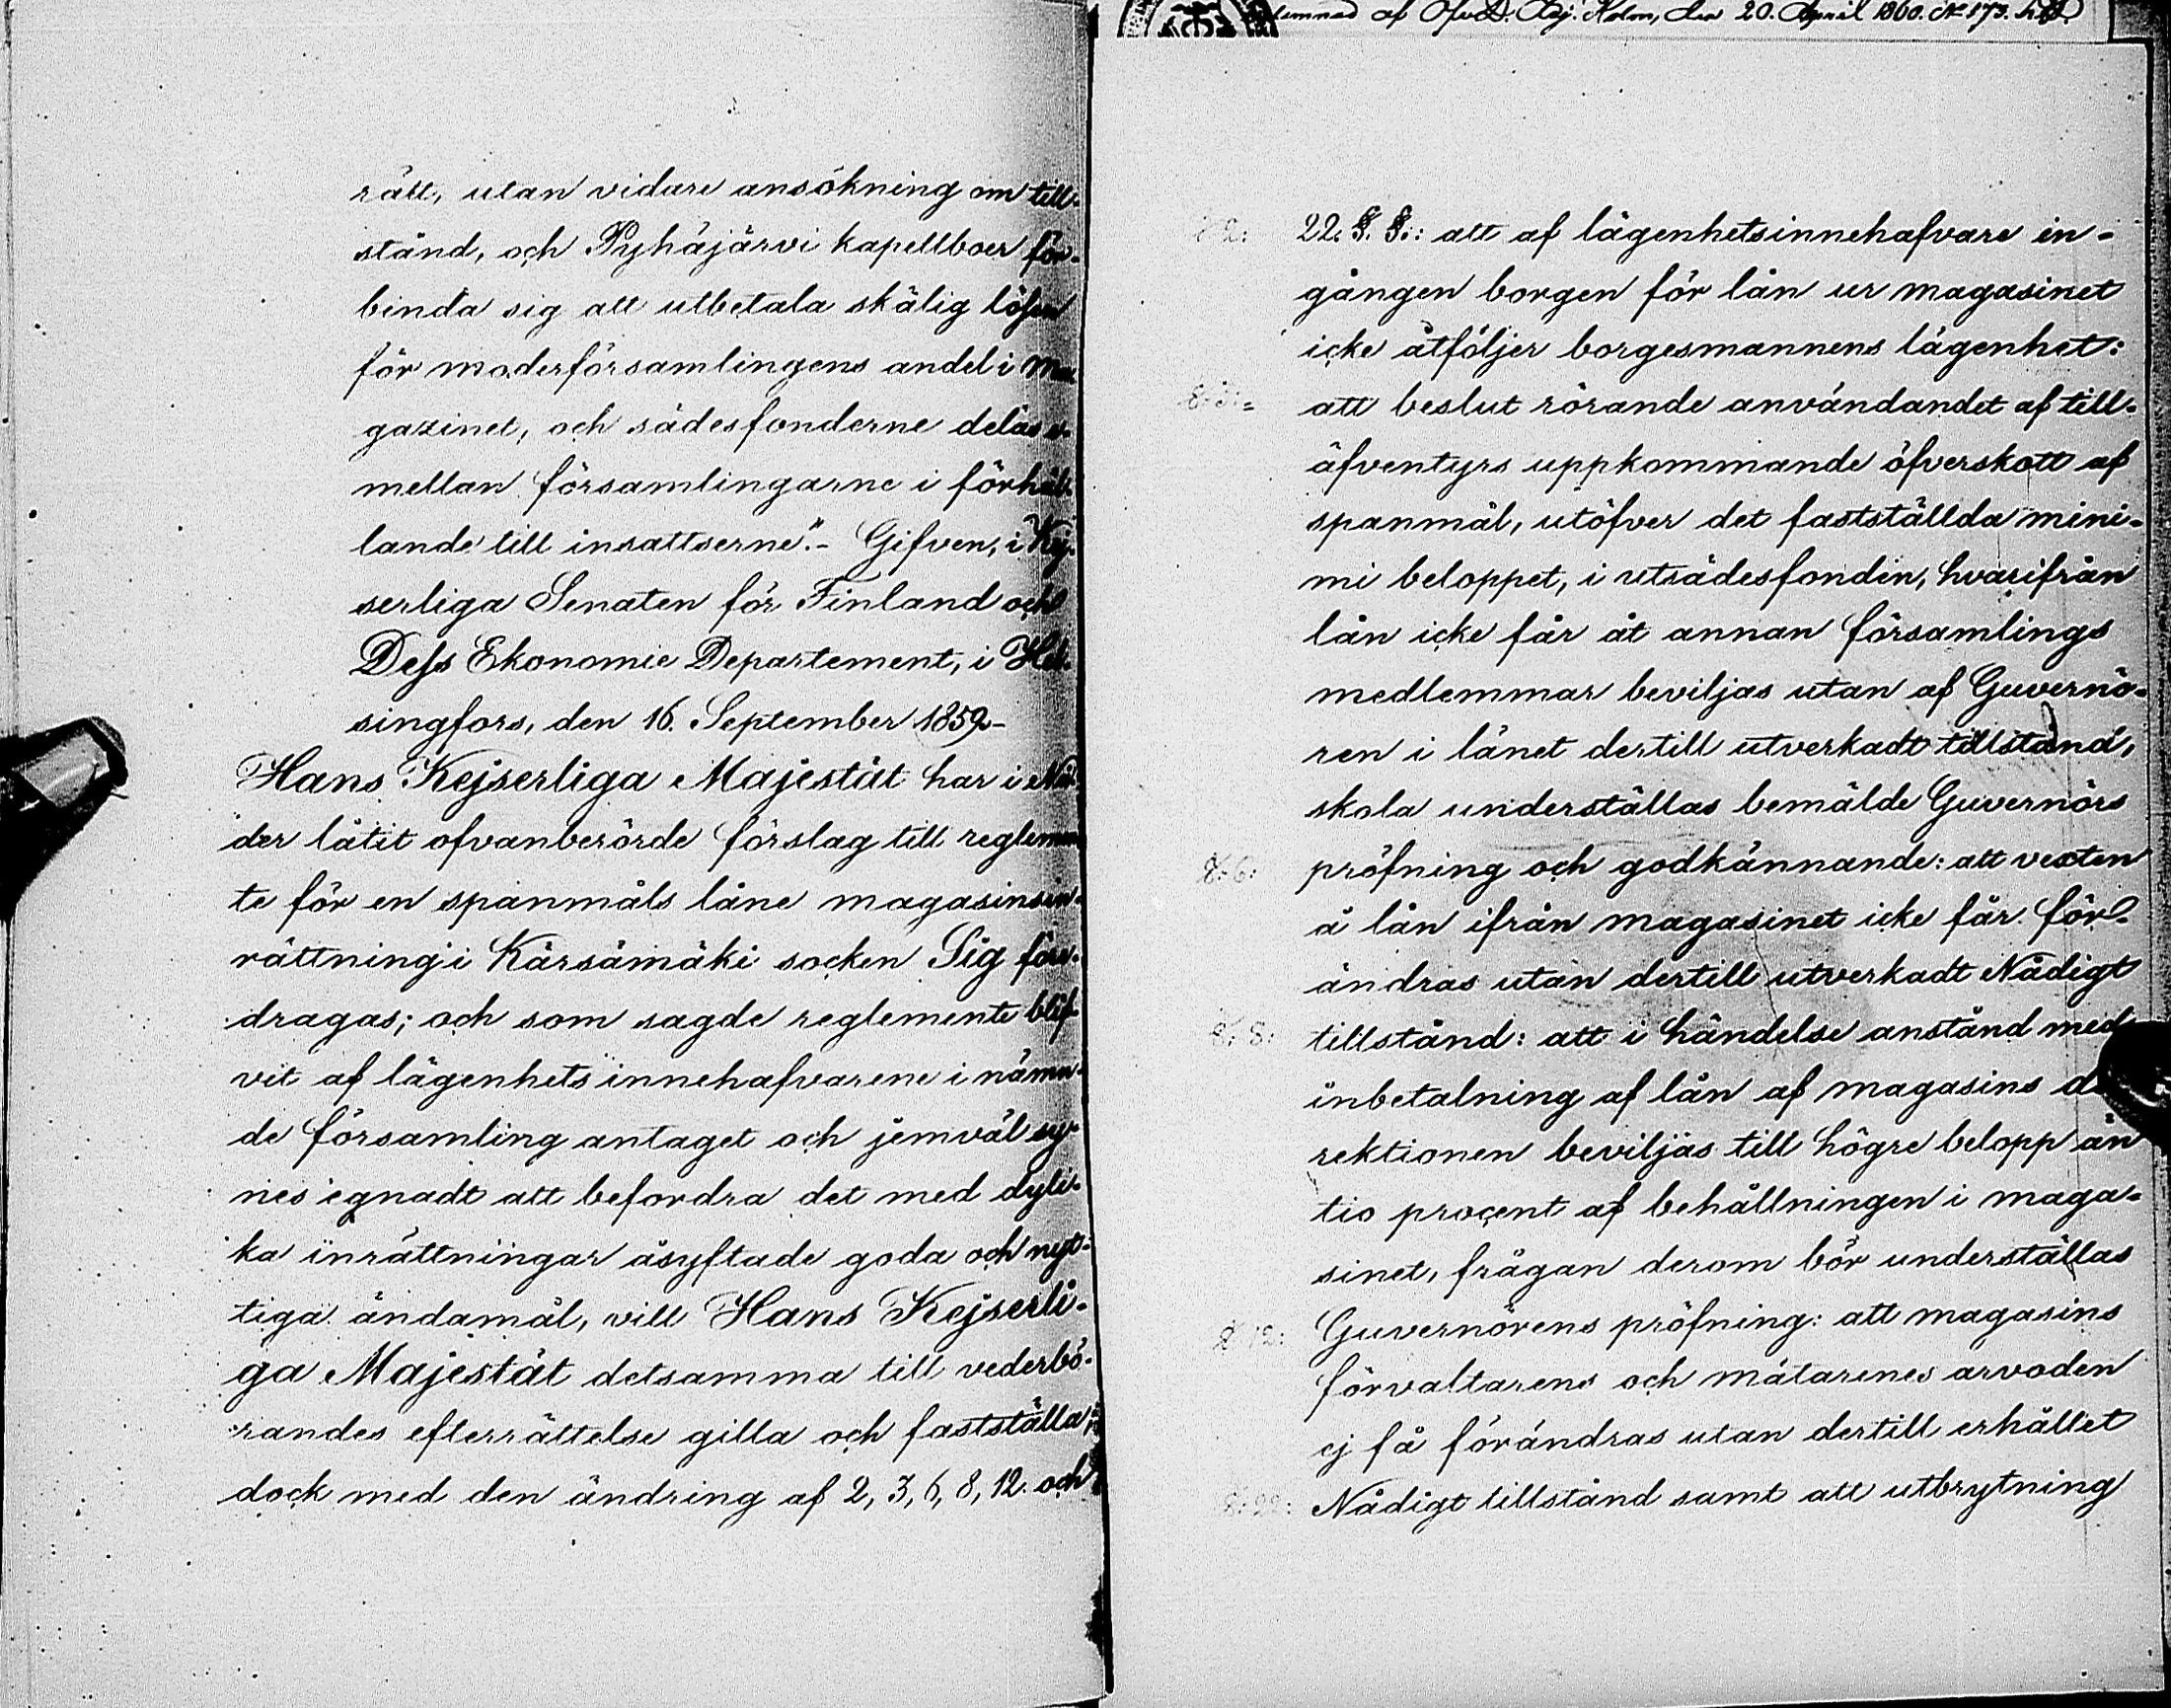 rätt, utan vidare ansökning om till-
stånd, och Pyhäjärvi kapellboer för-
binda sig att utbetala skälig lösen
för moderförsamlingens andel i ma
gazinet, och sädesfonderne delas e-
mellan församlingarne i förhål-
lande till insattserne." - Gifven, i Kej-
serliga Senaten för Finland och
Dess Ekonomie Departement, i Hel-
singfors, den 16. September 1859.-
Hans Kejserliga Majestät har i Nå-
der låtit ofvanberörde förslag till reglemen
te för en spanmåls låne magasinsin-
rättning i Kärsämäki socken Sig före-
dragas; och som sagde reglemente blif-
vit af lägenhets innehafvarene i nämn-
de församling antaget och jemväl sy-
nes egnadt att befordra det med dyli-
ka inrättningar åsyftade goda och nyt-
tiga ändamål, vill Hans Kejserli-
ga Majestät detsamma till vederbö-
randes efterrättelse gilla och fastställa;
dock med den ändring af 2, 3, 6, 8, 12. och
af Öfv. Dir. Exp. Holm, den 20. April 1860. No 173.
§ 2: 22. §. §.: att af lägenhetsinnehafvare in-
gången borgen för lån ur magasinet
icke åtföljer borgesmannens lägenhet:
§. 3: att beslut rörande användandet af till-
äfventyrs uppkommande öfverskott af
spanmål, utöfver det fastställda mini-
mi beloppet, i utsädesfonden, hvarifrån
lån icke får åt annan församlings
medlemmar beviljas utan af Guvernö-
ren i länet dertill utverkadt tillstånd,
skola underställas bemälde Guvernörs
§. 6: pröfning och godkännande: att vexten
å lån ifrån magasinet icke får för-
ändras utan dertill utverkadt Nådigt
§. 8: tillstånd: att i händelse anstånd med
inbetalning af lån af magasins di
rektionen beviljas till högre belopp än
tio procent af behållningen i maga-
sinet, frågan derom bör underställas
§ 12: Guvernörens pröfning: att magasins
förvaltarens och mätarenes arvoden
ej få förändras utan dertill erhållet
§. 22: Nådigt tillstånd samt att utbrytning